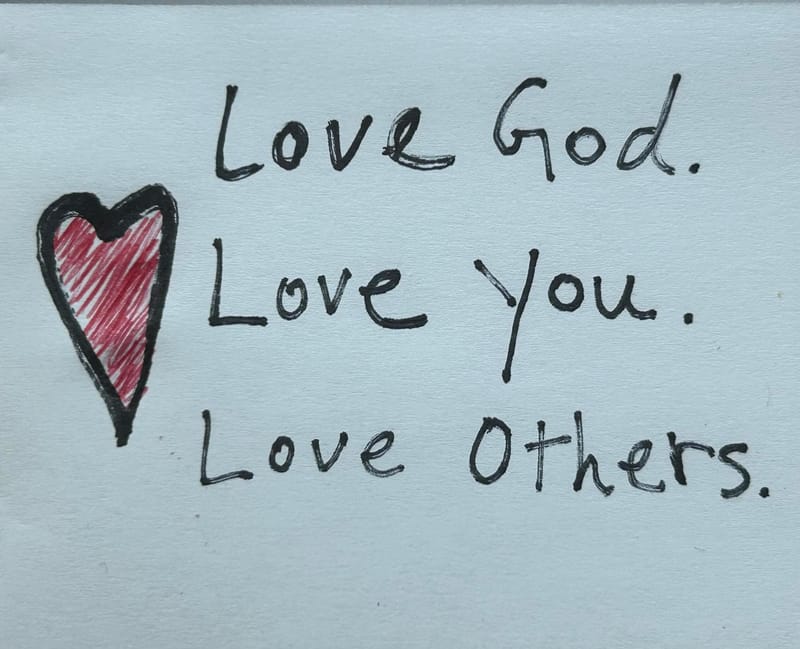 Love God.
Love you.
Love Others.